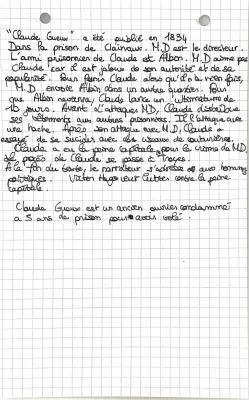 "Claude Gueux" a été publié en 1834
Dans la prison de Clairvaux. M.D est le directeur.
L'ami prisonnier de Claude est Albin. M.D aime pas
Claude car il est jaloux de son autorité et de sa
popularité. Pour punir Claude alors qu'il n'a rien fait,
M.D. envoie Albin dans un autre quartier. Pour
que Albin revienne, Claude lance un ultimatum de
10 jours. Avant d'attaquer MD, Claude distribue
ses vêtements aux autres prisonniers. Il l'attaque avec
une hache. Après son attaque avec M.D, Claude a
essayé de se suicider avec des ciseaux de couturières.
Claude a eu la peine capitale pour le crime de MD.
Le procès de Claude se passe à Troyes.
A la fin du texte, le narrateur s'adresse aux hommes
politiques. Victor Hugo veut lutter contre la peine
capitale.
Claude Gueux est un ancien ouvrier condamné
a 5 ans de prison pour avoir volé.